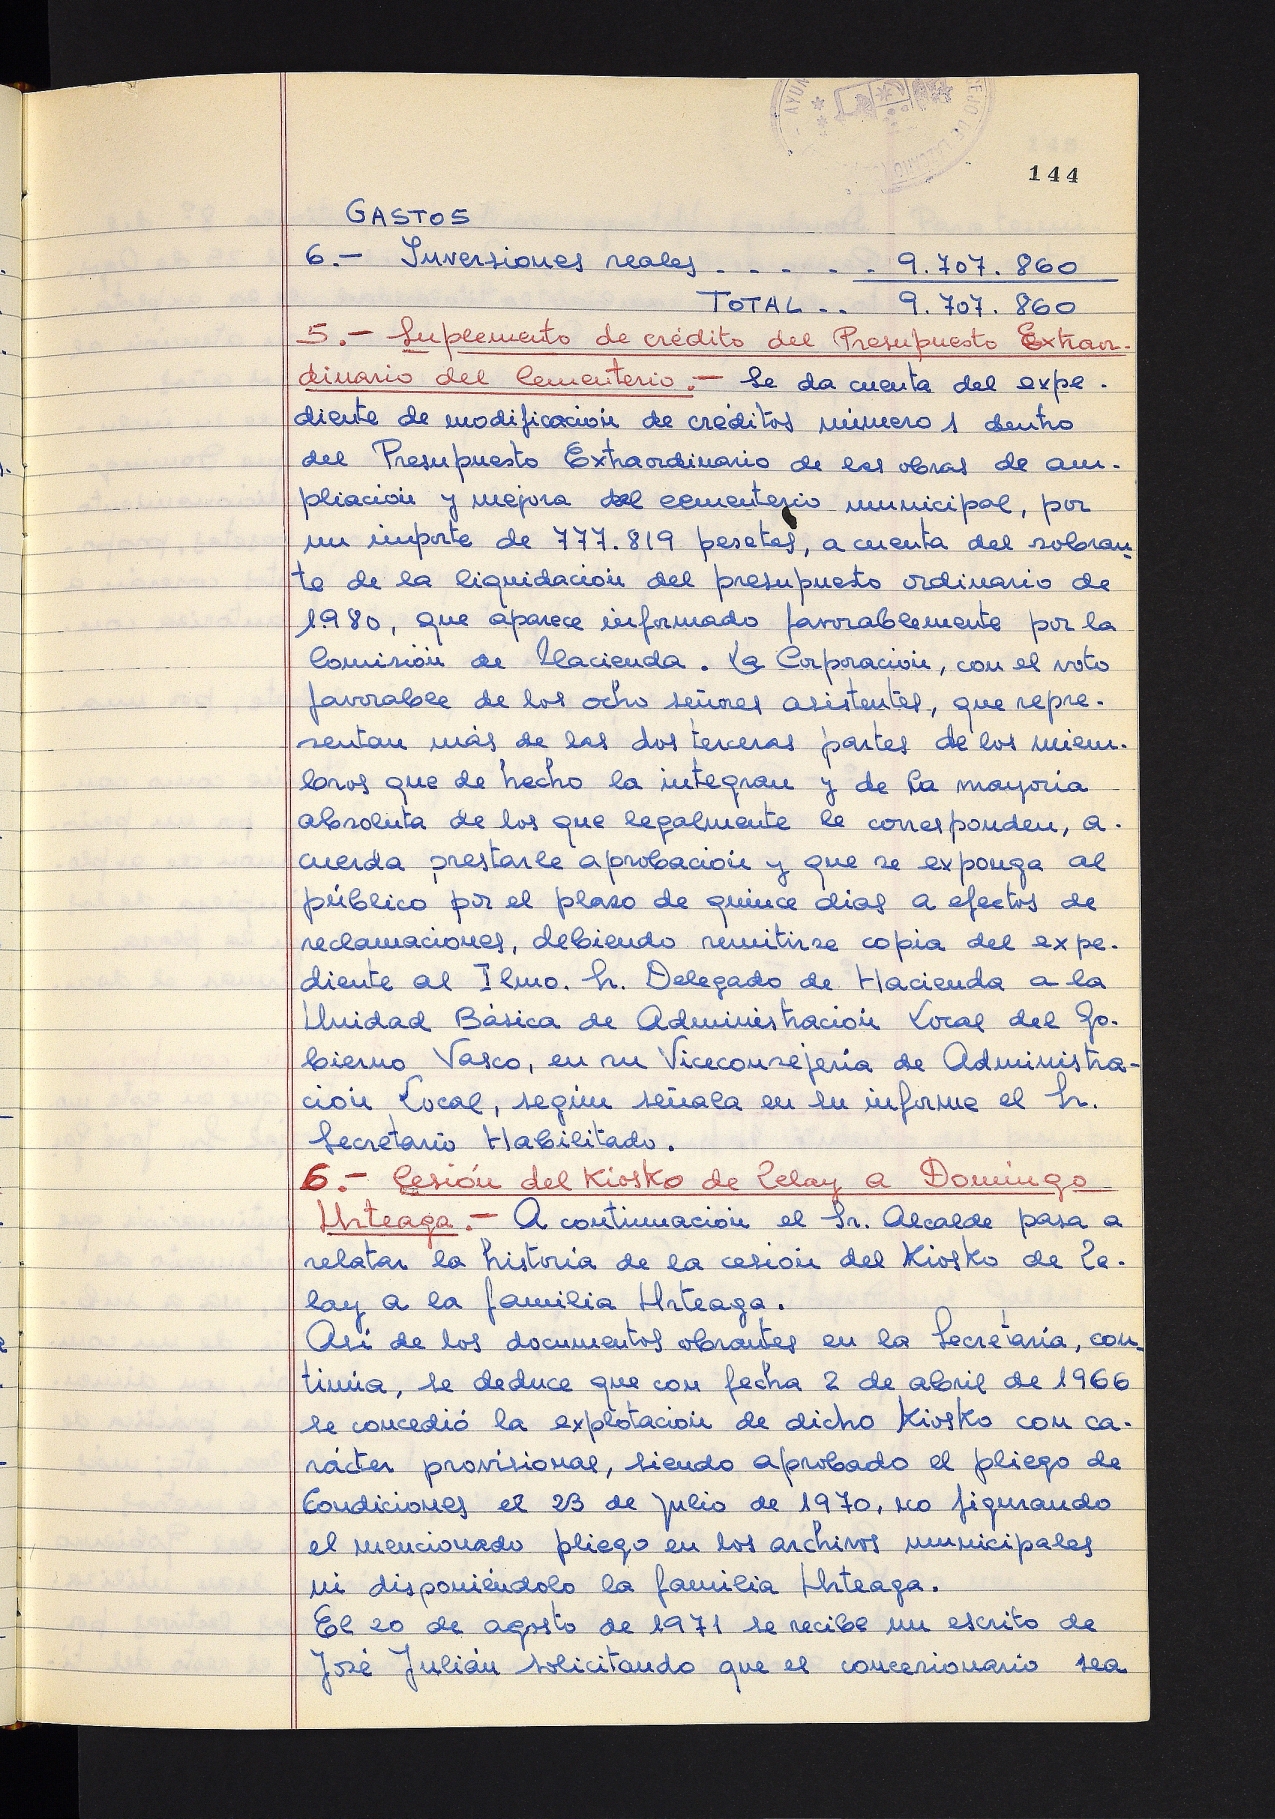 144
GASTOS
6.- Inversiones reales . . . . . . 9.707.860
TOTAL .. 9.707.860
5.- Suplemento de crédito del Presupuesto Extraor-
dinario del Cementerio.- Se da cuenta del expe-
diente de modificación de créditos número 1 dentro
del Presupuesto Extraordinario de las obras de am-
pliación y mejora del cementerio municipal, por
un importe de 777.819 pesetas, a cuenta del sobran-
te de la liquidación del presupuesto ordinario de
1.980, que aparece informado favorablemente por la
Comisión de Hacienda. La Corporación, con el voto
favorable de los ocho señores asistentes, que repre-
sentan más de las dos terceras partes de los miem-
bros que de hecho la integran y de la mayoría
absoluta de los que legalmente le corresponden, a-
cuerda prestarle aprobación y que se exponga al
público por el plazo de quince días a efectos de
reclamaciones, debiendo remitirse copia del expe-
diente al Ilmo. Sr. Delegado de Hacienda a la
Unidad Básica de Administración Local del Go-
bierno Vasco, en su Viceconsejería de Administra-
ción Local, según señala en su informe el Sr.
Secretario Habilitado.
6.- Cesión del Kiosko de Zelay a Domingo
Urteaga.- A continuación el Sr. Alcalde pasa a
relatar la historia de la cesión del Kiosko de Ze-
lay a la familia Urteaga.
Así de los documentos obrantes en la Secretaría, con-
tinúa, se deduce que con fecha 2 de abril de 1966
se concedió la explotación de dicho Kiosko con ca-
rácter provisional, siendo aprobado el pliego de
Condiciones el 23 de Julio de 1970, no figurando
el mencionado pliego en los archivos municipales
ni disponiéndolo la familia Urteaga.
El 20 de agosto de 1971 se recibe un escrito de
José Julián solicitando que el concesionario sea